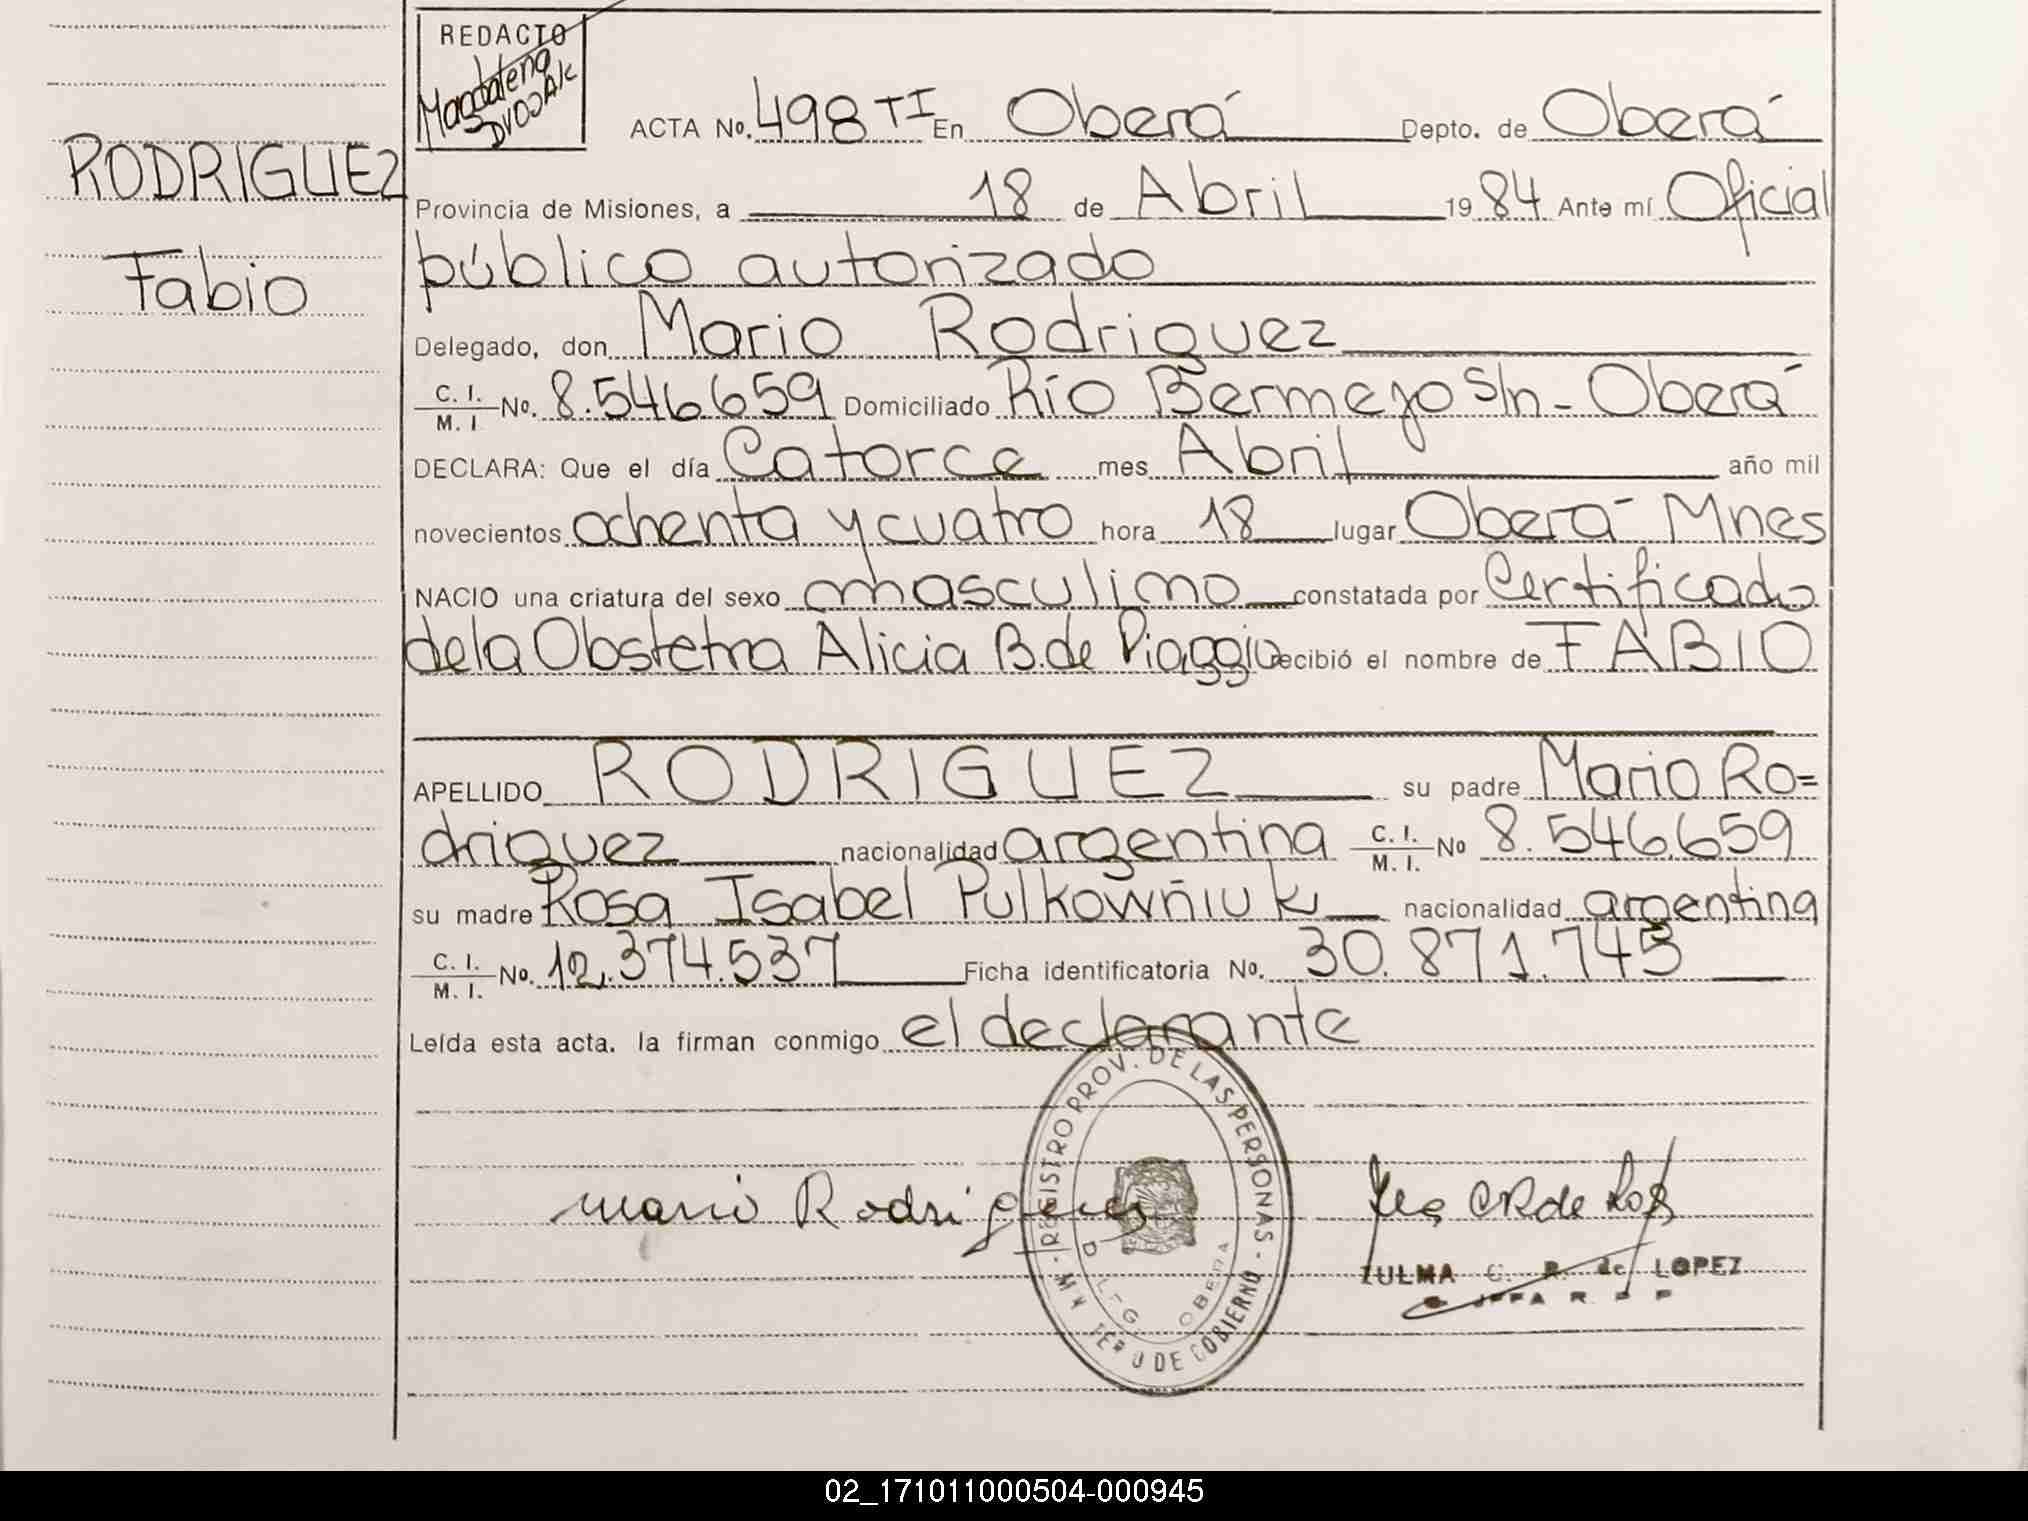 REDACTO
Magdalena
DVOJAK
ACTA No. 498 TI En Oberá Depto. de Oberá
RODRIGUEZ
Provincia de Misiones, a 18 de Abril 1984 Ante mí Oficial
Fabio
público autorizado
Delegado, don Mario Rodriguez
C. I. / M. I No. 8.546.659 Domiciliado Río Bermejo S/n - Oberá
DECLARA: Que el día Catorce mes Abril año mil
novecientos ochenta y cuatro hora 18 lugar Oberá Mnes
NACIO una criatura del sexo masculino constatada por Certificado
de la Obstetra Alicia B. de Piaggio recibió el nombre de FABIO
APELLIDO RODRIGUEZ su padre Mario Ro=
driguez nacionalidad argentina C. I. / M. I. No 8.546.659
su madre Rosa Isabel Pulkowñiuk nacionalidad argentina
C. I. / M. I. No. 12.374.537 Ficha identificatoria No. 30.871.745
Leída esta acta. la firman conmigo el declarante
REGISTRO PROV. DE LAS PERSONAS
OBERA
DE GOBIERNO
Mario Rodrigues
ZULMA C. R. de LOPEZ
02_171011000504-000945